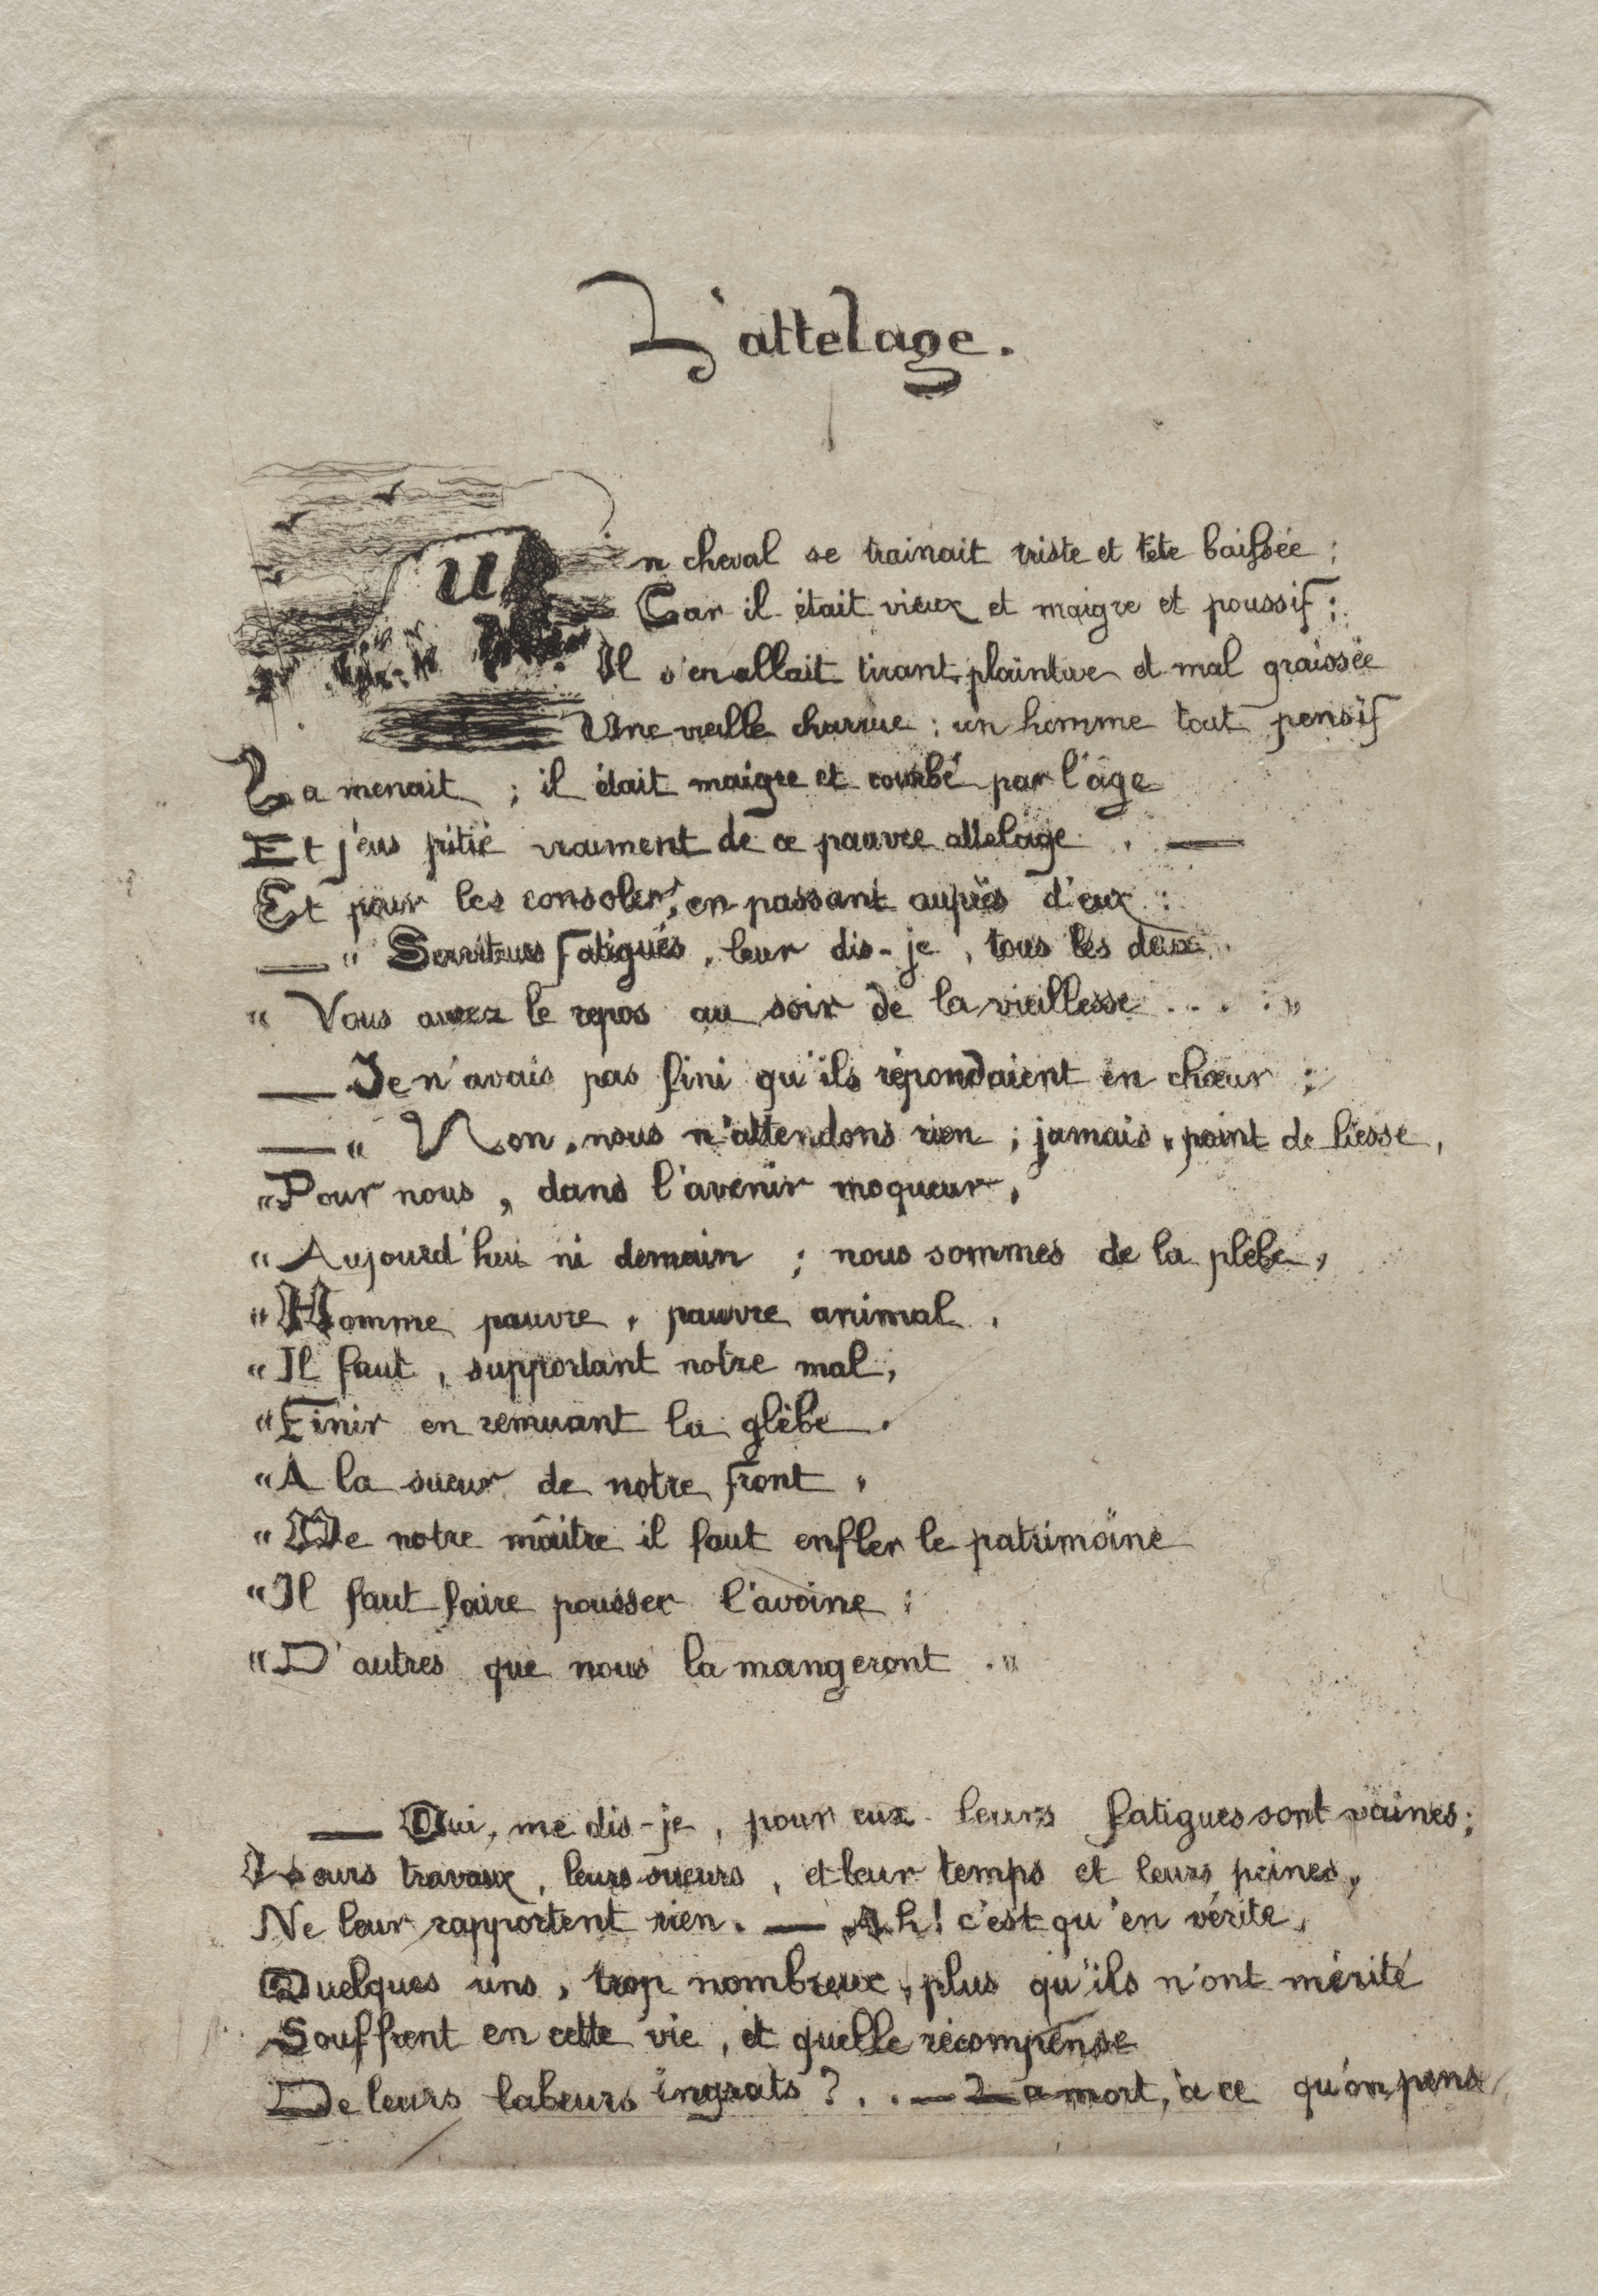 L'attelage.
Un cheval se trainait triste et tête baissée ;
Car il était vieux et maigre et poussif ;
Il s'en allait tirant, plaintive et mal graissée
Une vieille charrue ; un homme tout pensif
La menait ; il était maigre et courbé par l'âge
Et j'eus pitié vraiment de ce pauvre attelage . —
Et pour les consoler, en passant auprès d'eux :
— " Serviteurs fatigués, leur dis-je, tous les deux,
" Vous aurez le repos au soir de la vieillesse . . . . "
— Je n'avais pas fini qu'ils répondaient en chœur :
— " Non, nous n'attendons rien ; jamais, point de liesse,
" Pour nous, dans l'avenir moqueur,
" Aujourd'hui ni demain ; nous sommes de la plèbe,
" Homme pauvre, pauvre animal,
" Il faut, supportant notre mal,
" Finir en remuant la glèbe.
" A la sueur de notre front,
" De notre maître il faut enfler le patrimoine
" Il faut faire pousser l'avoine ;
" D'autres que nous la mangeront . "
— Oui, me dis-je, pour eux leurs fatigues sont vaines ;
Leurs travaux, leurs sueurs, et leur temps et leurs peines,
Ne leur rapportent rien. — Ah! c'est qu'en vérité,
Quelques uns, trop nombreux, plus qu'ils n'ont mérité
Souffrent en cette vie, et quelle récompense
De leurs labeurs ingrats ? . . — La mort, à ce qu'on pense